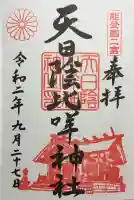 能登國二宮
奉拝
天日陰比咩神社
令和二年九月二十七日